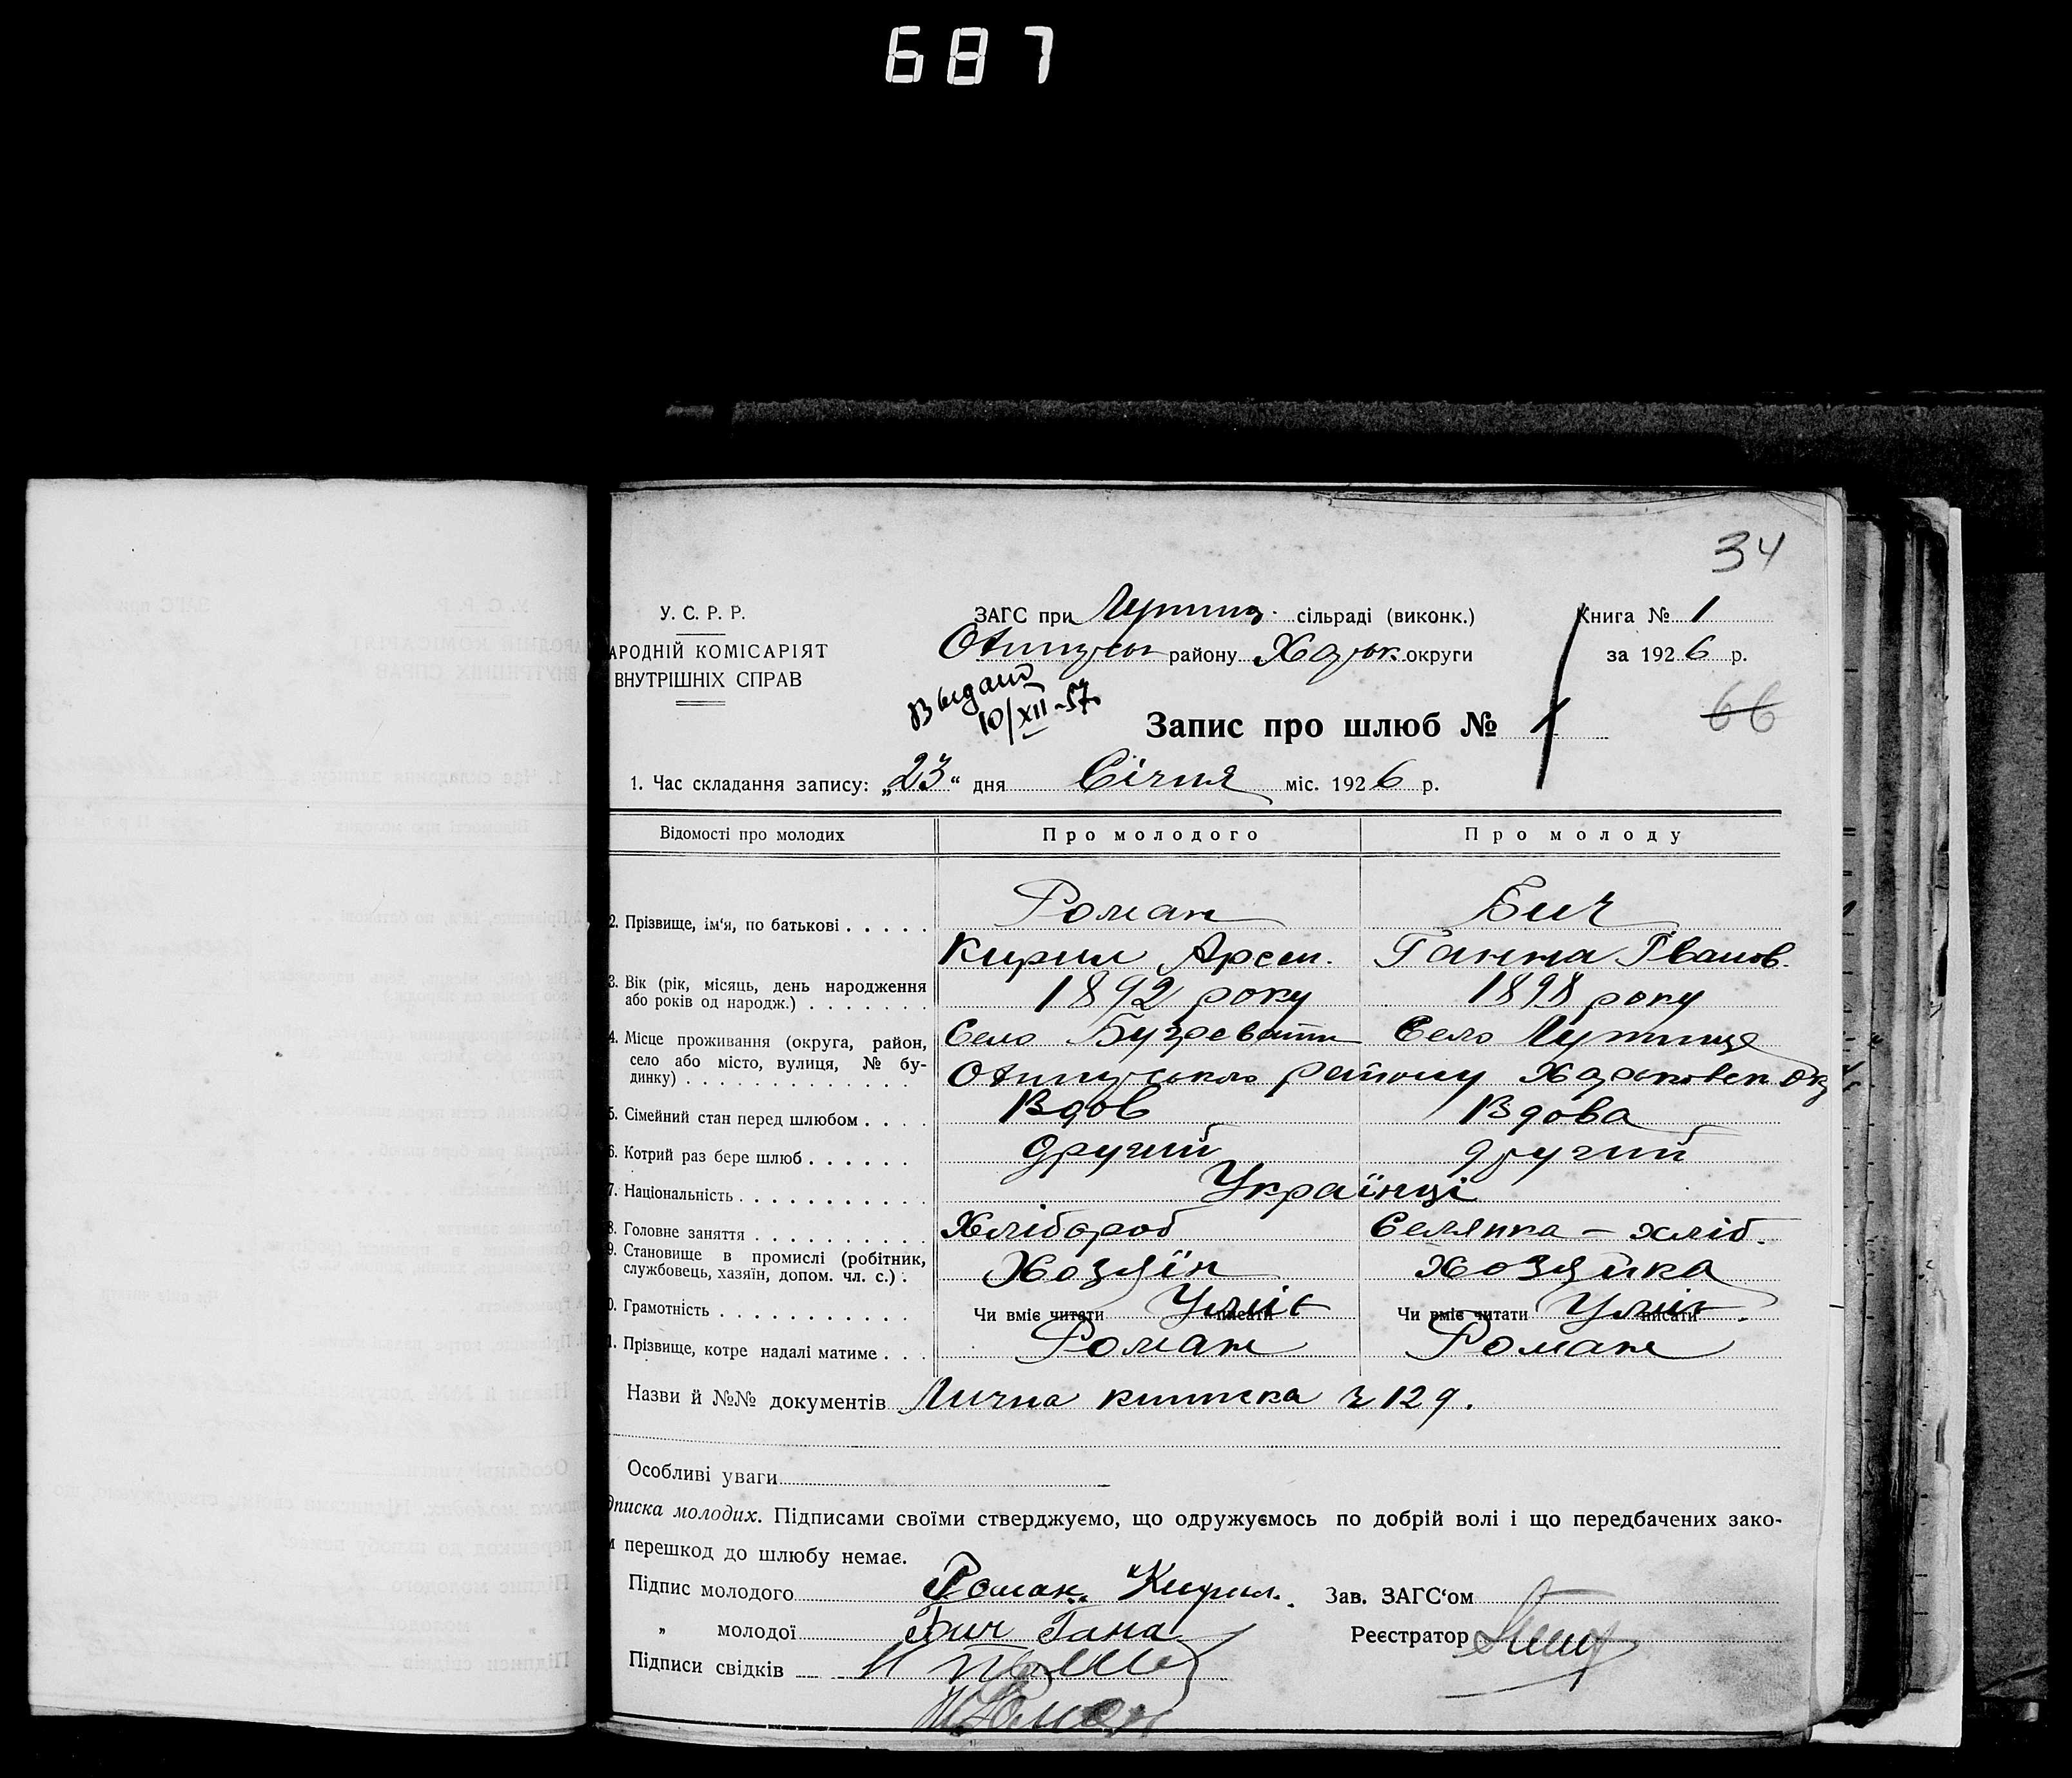 687
34
У. С. Р. Р.
АРОДНІЙ КОМІСАРІЯТ
ВНУТРІШНІХ СПРАВ
ЗАГС при сільраді (виконк.)
району Харьк. округи
Книга № 1
за 1926 р.
Выдано
10/XII-57
Запис про шлюб № 1
66
1. Час складання запису: „23“ дня Січня міс. 1926 р.
Відомості про молодих
Про молодого
Про молоду
2. Прізвище, ім‘я, по батькові . . . . .
Роман
Кирил Арсен.
Бич
Ганна Іванов.
3. Вік (рік, місяць, день народження
або років од народж.) . . . . . . .
1892 року
1898 року
4. Місце проживання (округа, район,
село або місто, вулиця, № бу-
динку) . . . . . . . . . . . . . .
Село
Село Лутище
району Харьковск. Окр
5. Сімейний стан перед шлюбом . . . .
Вдов
Вдова
6. Котрий раз бере шлюб . . . . . .
другий
другий
7. Національність . . . . . . . . . . .
Українці
8. Головне заняття . . . . . . . . . .
Хлібороб
Селянка – хліб.
9. Становище в промислі (робітник,
службовець, хазяїн, допом. чл. с.) .
Хозяїн
хозяйка
0. Грамотність . . . . . . . . . . .
Чи вміє читати писати Уміє
Чи вміє читати писати Уміє.
1. Прізвище, котре надалі матиме . . .
Роман
Роман
Назви й №№ документів Лична книжка № 129.
Особливі уваги
дписка молодих. Підписами своїми стверджуємо, що одружуємось по добрій волі і що передбачених зако-
м перешкод до шлюбу немає.
Підпис молодого Роман Кирил.
Зав. ЗАГС‘ом
„ молодої Бич Гана
Реєстратор
Підписи свідків